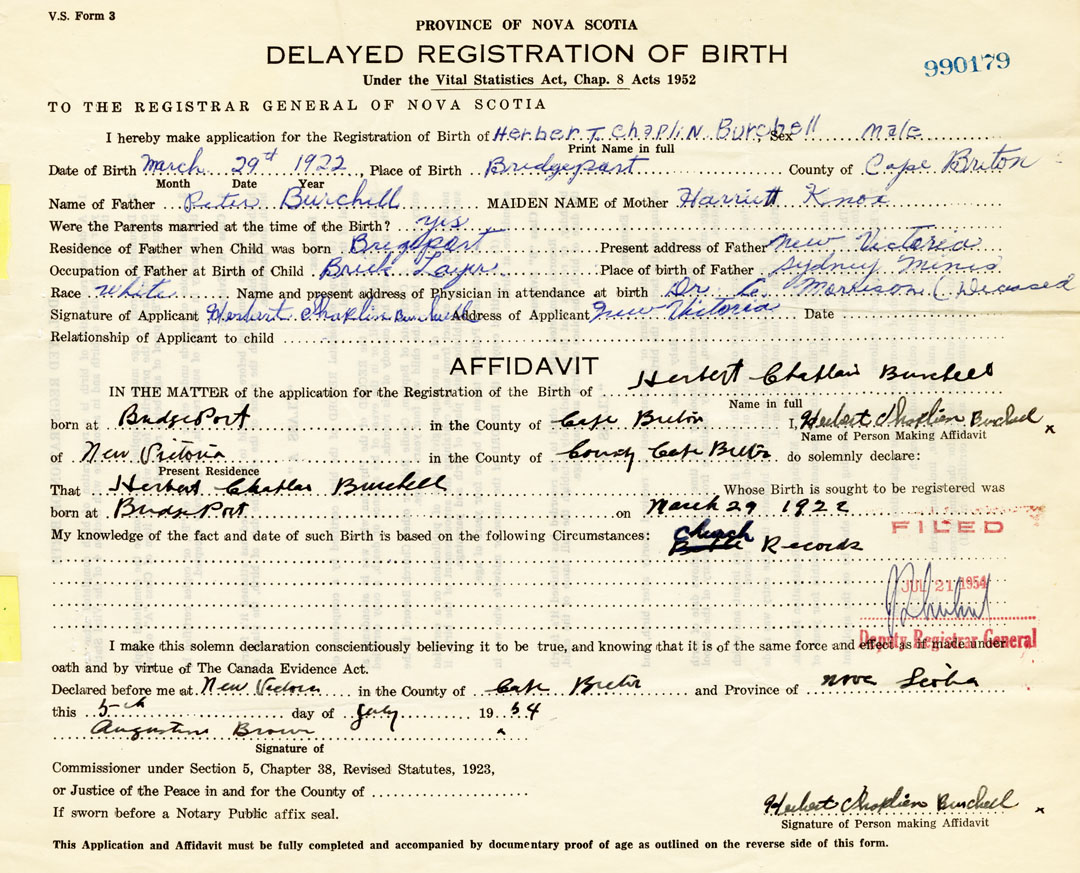 V.S. Form 3
PROVINCE OF NOVA SCOTIA
DELAYED REGISTRATION OF BIRTH
990179
Under the Vital Statistics Act, Chap. 8 Acts 1952
TO THE REGISTRAR GENERAL OF NOVA SCOTIA
I hereby make application for the Registration of Birth of Herbert T. Chaplin Burchell Sex Male
Print Name in full
Date of Birth March 29th 1922, Place of Birth Bridgeport County of Cape Briton
Month Date Year
Name of Father Peter Burchell MAIDEN NAME of Mother Harriett Knox
Were the Parents married at the time of the Birth? yes
Residence of Father when Child was born Brigeport Present address of Father New Victoria
Occupation of Father at Birth of Child Brick Layer Place of birth of Father Sydney Mines
Race White Name and present address of Physician in attendance at birth Dr Morrison (Deceased
Signature of Applicant Herbert Chaplin Burchell Address of Applicant New Victoria Date
Relationship of Applicant to child
AFFIDAVIT
IN THE MATTER of the application for the Registration of the Birth of Herbert Chaplain Burchell
Name in full
born at BridgePort in the County of Cape Breton I, Herbert Chaplien Burchell x
Name of Person Making Affidavit
of New Victoria in the County of County Cape Breton do solemnly declare:
Present Residence
That Herbert Chaplan Burchell Whose Birth is sought to be registered was
born at BridgePort on March 29 1922
My knowledge of the fact and date of such Birth is based on the following Circumstances: Church Records
FILED
JUL 21 1954
Deputy Registrar General
I make this solemn declaration conscientiously believing it to be true, and knowing that it is of the same force and effect as if made under
oath and by virtue of The Canada Evidence Act.
Declared before me at New Victoria in the County of Cape Breton and Province of Nova Scotia
this 5th day of July 1954
Augustine Brown
Signature of
Commissioner under Section 5, Chapter 38, Revised Statutes, 1923,
or Justice of the Peace in and for the County of
If sworn before a Notary Public affix seal.
Herbert Chaplien Burchell x
Signature of Person making Affidavit
This Application and Affidavit must be fully completed and accompanied by documentary proof of age as outlined on the reverse side of this form.